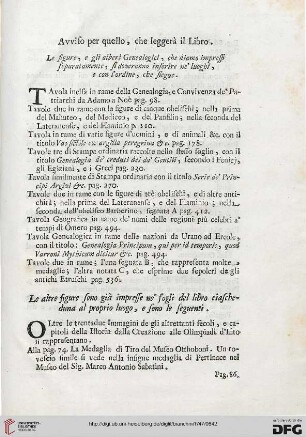 Avviso per quello, che leggerà il Libro.
Le figure, e gli alberi Genealogici, che diamo impressi
separatamente, si dovranno inserire ne' luoghi,
e con l'ordine, che segue.
TAvola incisa in rame della Genealogia, e Convivenza de' Pa-
triarchi da Adamo a Noè pag. 98.
Tavole due in rame con la figure di cinque obelischi, nella prima
del Mahuteo, del Mediceo, e del Panfilio, nella seconda del
Lateranense, e del Flaminio p. 110.
Tavola in rame di varie figure d'uomini, e di animali &c. con il
titolo Vas fictile ex argilla peregrina &c. pag. 178.
Tavole tre di Stampa ordinaria raccolte nello stesso foglio, con il
titolo Genealogia de' creduti dei de' Gentili, secondo i Fenicj,
gli Egiziani, e i Greci pag. 230.
Tavola similmente di Stampa ordinaria con il titolo Serie de' Prin-
cipi Argivi &c. pag. 270.
Tavole due in rame con le figure di tre obelischi, e di altre anti-
chità; nella prima del Lateranense, e del Flaminio; nella
seconda, dell'obelisco Barberino; segnata A pag. 412.
Tavola Geografica in rame de' nomi delle regioni più celebri a'
tempi di Omero pag. 494.
Tavola Genealogica in rame delle nazioni da Urano ad Ercole,
con il titolo: Genealogia Principum, qui per id temporis, quod
Varroni Mythicum dicitur &c. pag. 494.
Tavole due in rame; l'una segnata B, che rappresenta molte
medaglie; l'altra notata C, che esprime due sepolcri de gli
antichi Etruschi pag. 536.
Le altre figure sono già impresse ne' fogli del libro ciasche-
duna al proprio luogo, e sono le seguenti.
OLtre le trentadue Immagini de gli altrettanti secoli, e ca-
pitoli della Istoria dalla Creazione alle Olimpiadi d'Ifi-
to rappresentano.
Alla pag. 74. La Medaglia di Tiro del Museo Otthoboni. Un ro-
vescio simile si vede nella insigne medaglia di Pertinace nel
Museo del Sig. Marco Antonio Sabatini.
Pag. 86.